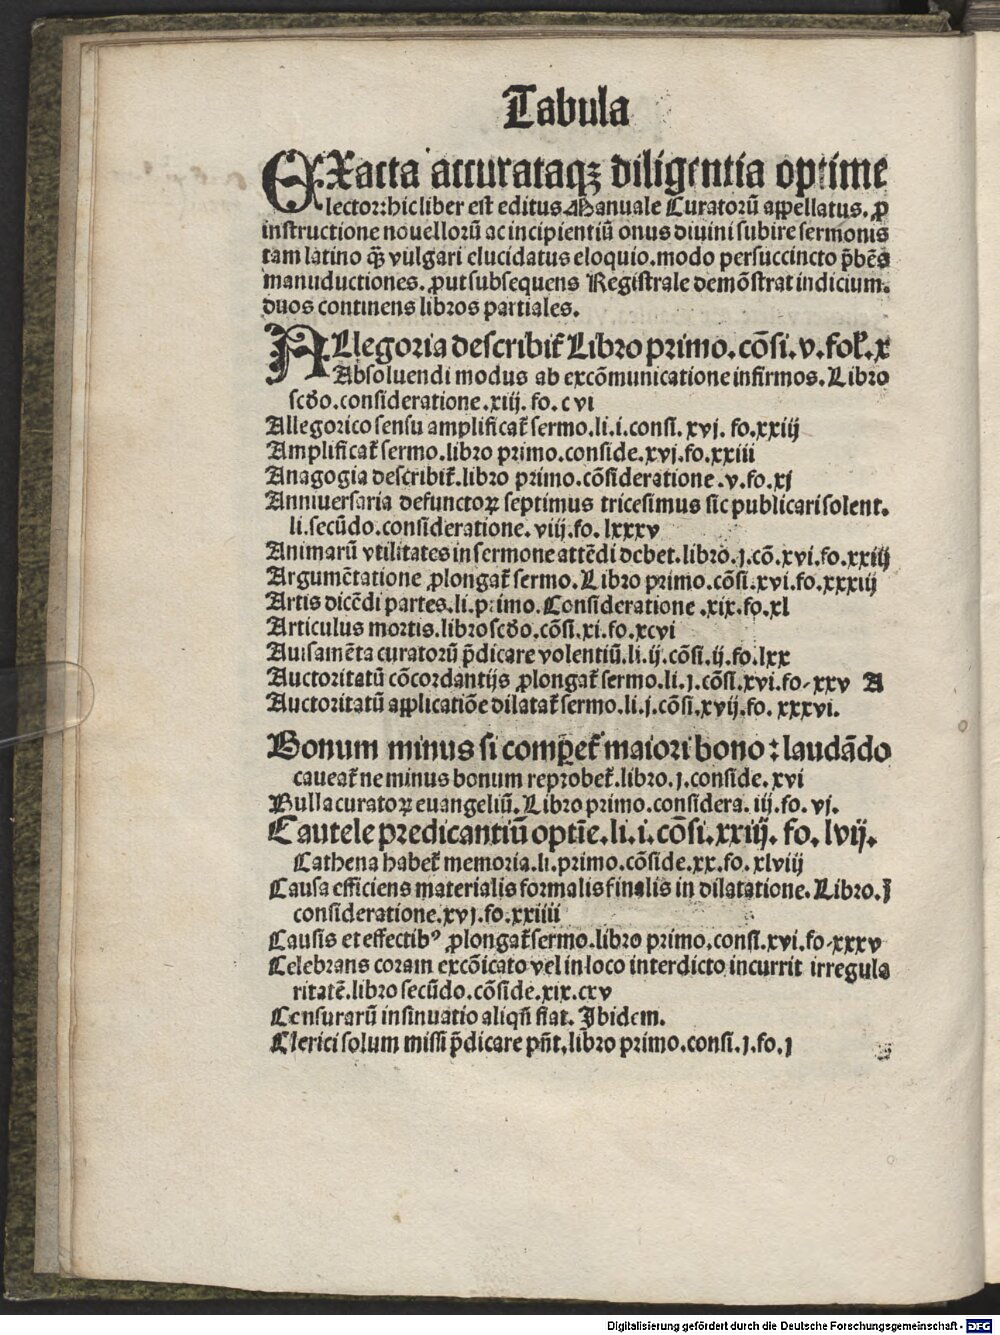 Tabula
EXacta accurataqꝫ diligentia optime
lector: hic liber est editus Manuale Curatorū appellatus. ꝓ
instructione nouellorū ac incipientiū onus diuini subire sermonis
tam latino q̄ꝫ vulgari elucidatus eloquio. modo persuccincto p̄bēs
manuductiones. ꝓut subsequens Registrale demōstrat indicium.
duos continens libros partiales.
ALlegoria describit̃ Libro primo. cōsi. v. fol̃. x
Absoluendi modus ab excōmunicatione infirmos. Libro
scd̄o. consideratione. xiij. fo. c vi
Allegorico sensu amplificat̃ sermo. li. i. consi. xvj. fo. xxiij
Amplificat̃ sermo. libro primo. conside. xvj. fo. xxiii
Anagogia describit̃. libro primo. cōsideratione. v. fo. xj
Anniuersaria defunctoꝝ septimus tricesimus sic publicari solent.
li. secūdo. consideratione. viij. fo. lxxxv
Animarū vtilitates in sermone attēdi debet. libro. j. cō. xvi. fo. xxiij
Argumētatione ꝓlongat̃ sermo. Libro primo. cōsi. xvi. fo. xxxiij
Artis dicēdi partes. li. primo. Consideratione. xix. fo. xl
Articulus mortis. libro scd̄o. cōsi. xi. fo. xcvi
Auisamēta curatorū p̄dicare volentiū. li. ij. cōsi. ij. fo. lxx
Auctoritatū cōcordantijs ꝓlongat̃ sermo. li. j. cōsi. xvi. fo. xxv A
Auctoritatū applicatiōe dilatat̃ sermo. li. j. cōsi. xvij. fo. xxxvi.
Bonum minus si compet̃ maiori bono: laudādo
caueat̃ ne minus bonum reprobet̃. libro. j. conside. xvi
Bulla curatoꝝ euangeliū. Libro primo. considera. iij. fo. vj.
Cautele predicantiū optīe. li. i. cōsi. xxiij. fo. lvij.
Cathena habet̃ memoria. li. primo. cōside. xx. fo. xlviij
Causa efficiens materialis formalis finalis in dilatatione. Libro. j
consideratione. xvj. fo. xxiiii
Causis et effectibꝰ ꝓlongat̃ sermo. libro primo. consi. xvi. fo. xxxv
Celebrans coram excōicato vel in loco interdicto incurrit irregula
ritatē. libro secūdo. cōside. xix. cxv
Censurarū insinuatio aliqñ fiat. Ibidem.
Clerici solum missi p̄dicare pñt. libro primo. consi. j. fo. j
Digitalisierung gefördert durch die Deutsche Forschungsgemeinschaft - DFG